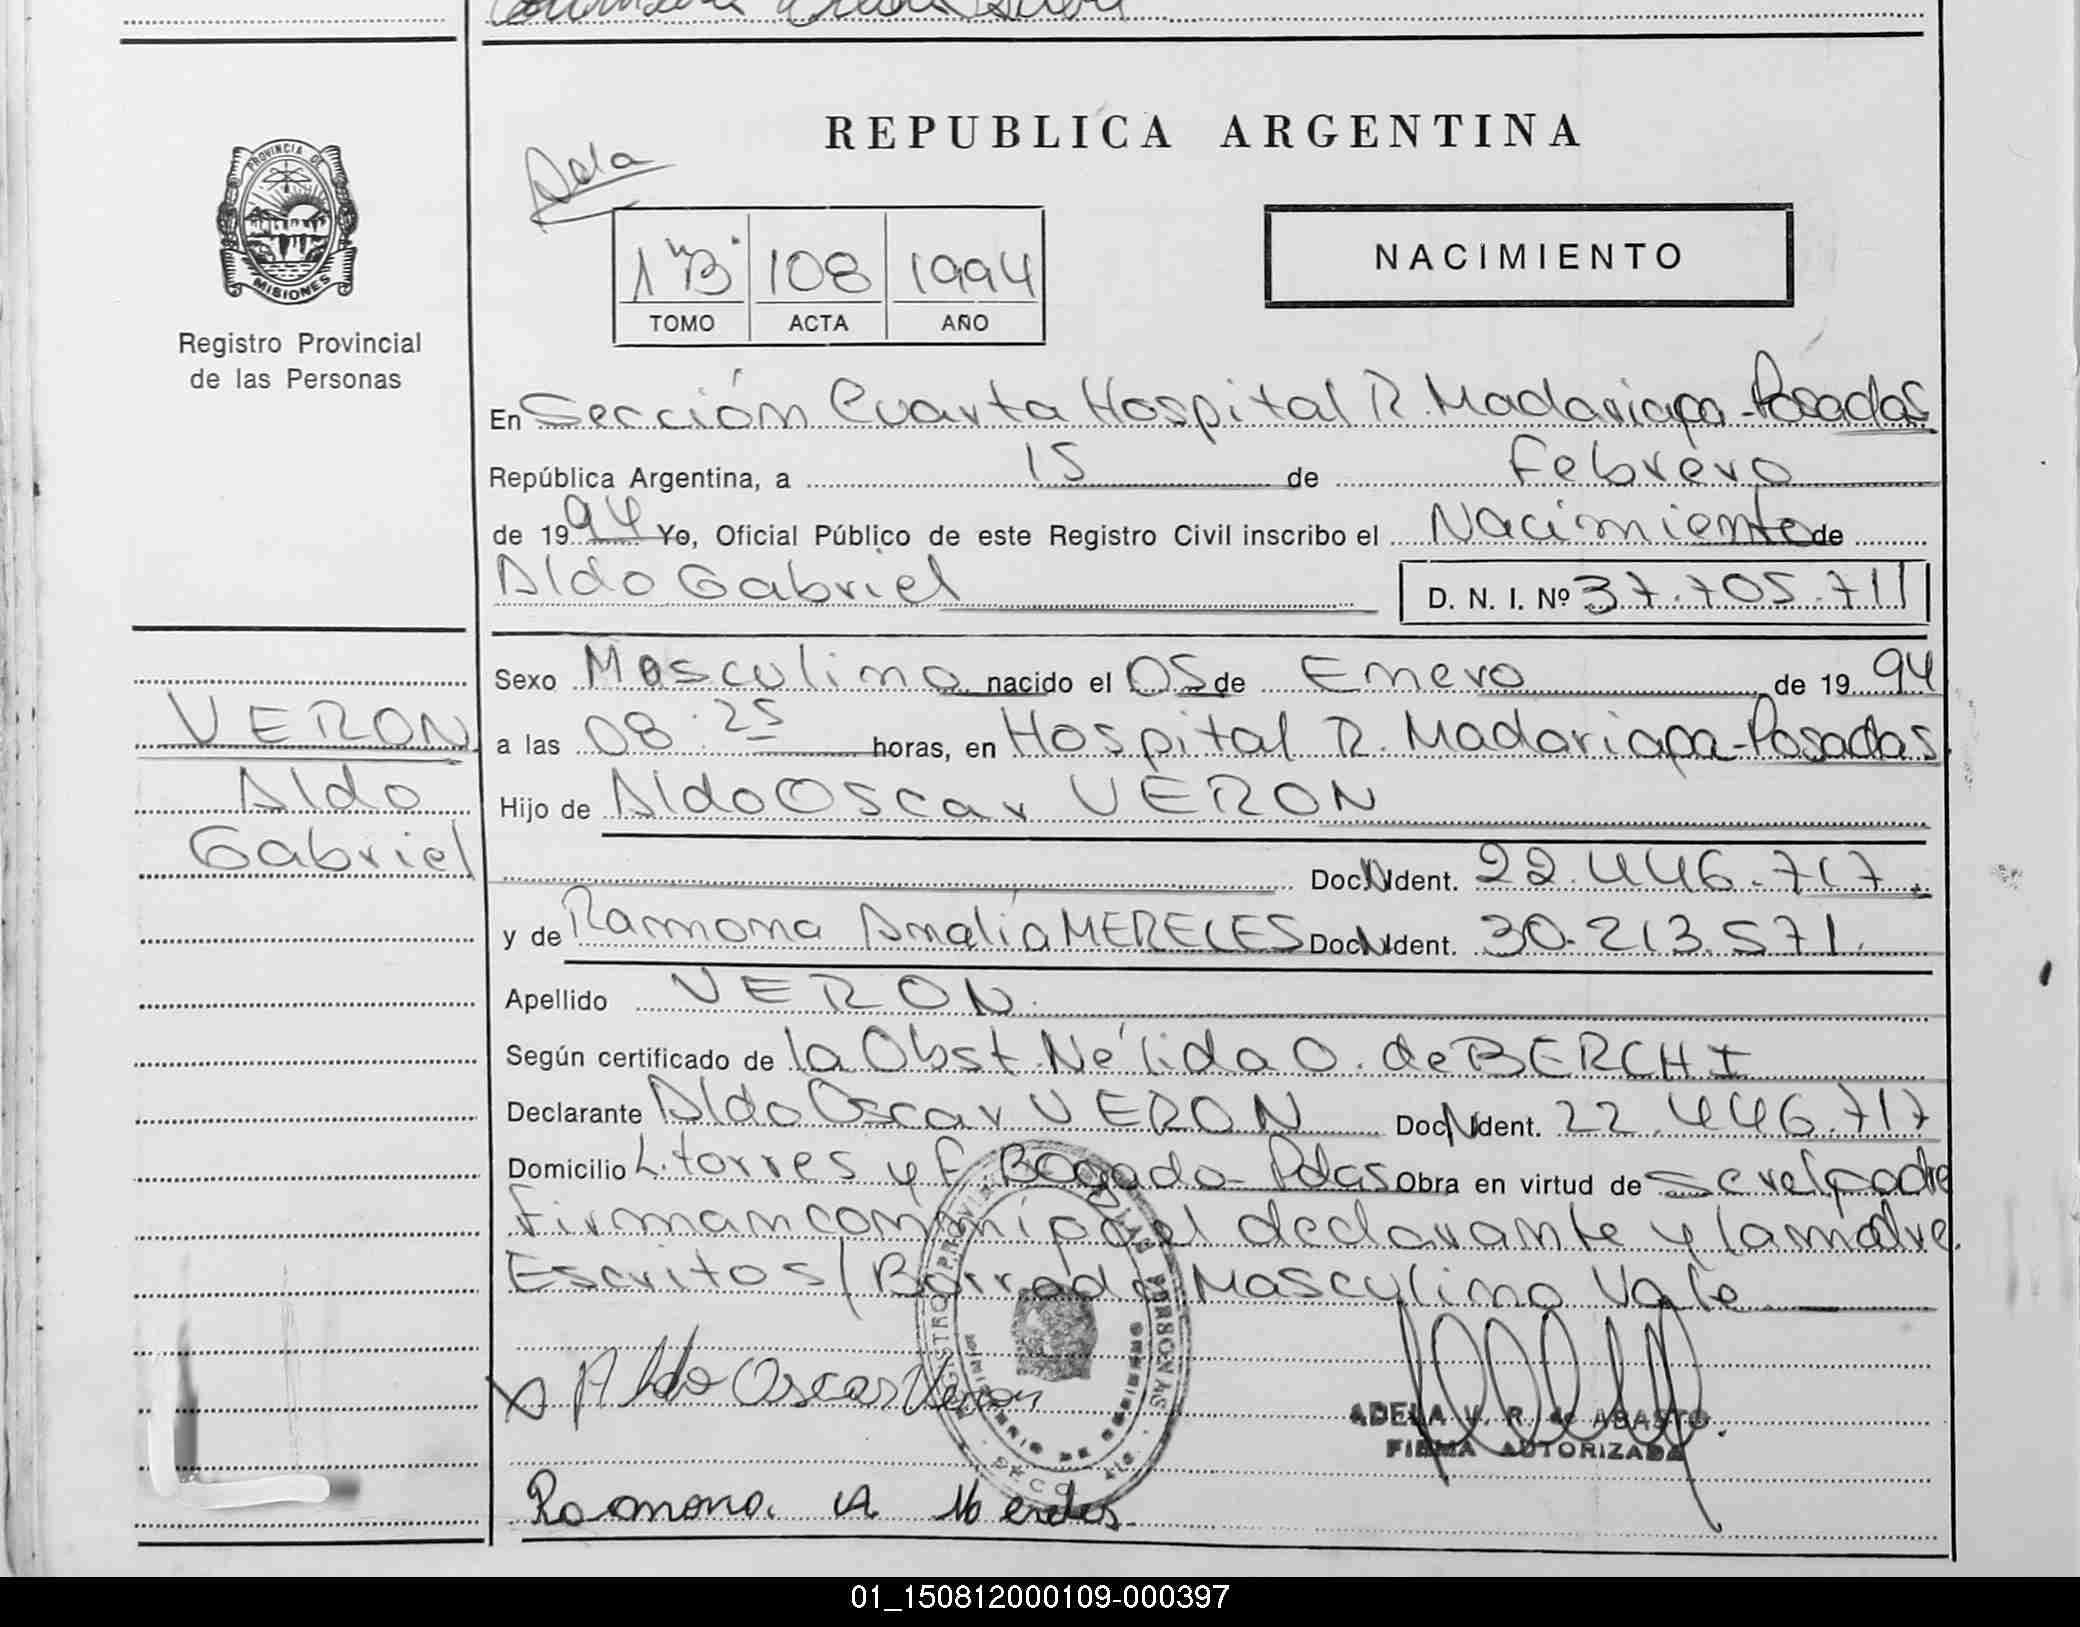 REPUBLICA ARGENTINA
PROVINCIA DE
MISIONES
Registro Provincial
de las Personas
Adela
1ºB. 108 1994
TOMO ACTA AÑO
NACIMIENTO
En Sección Cuarta Hospital R. Madariaga - Posadas
República Argentina, a 15 de Febrero
de 1994 Yo, Oficial Público de este Registro Civil inscribo el Nacimiento de
Aldo Gabriel D. N. I. Nº 37.705.711
Sexo Masculino nacido el 05 de Enero de 1994
VERON
a las 08.25 horas, en Hospital R. Madariaga - Posadas.
Aldo
Hijo de Aldo Oscar VERON
Gabriel
Doc. N Ident. 22.446.717.
y de Ramona Amalia MERELES Doc. N Ident. 30.213.571.
Apellido VERON.
Según certificado de la Obst. Nélida O. de BERCHI
Declarante Aldo Oscar VERON Doc. N Ident. 22.446.717
Domicilio L. torres y F. Bogado - Pdas Obra en virtud de ser el padre
Firman conmigo el declarante y la madre.
Escritos/Borrado Masculino Vale
Aldo Oscar Veron
ADELA V. R. de ABASTO
FIRMA AUTORIZADA
Ramona. A. Mereles.
01_150812000109-000397